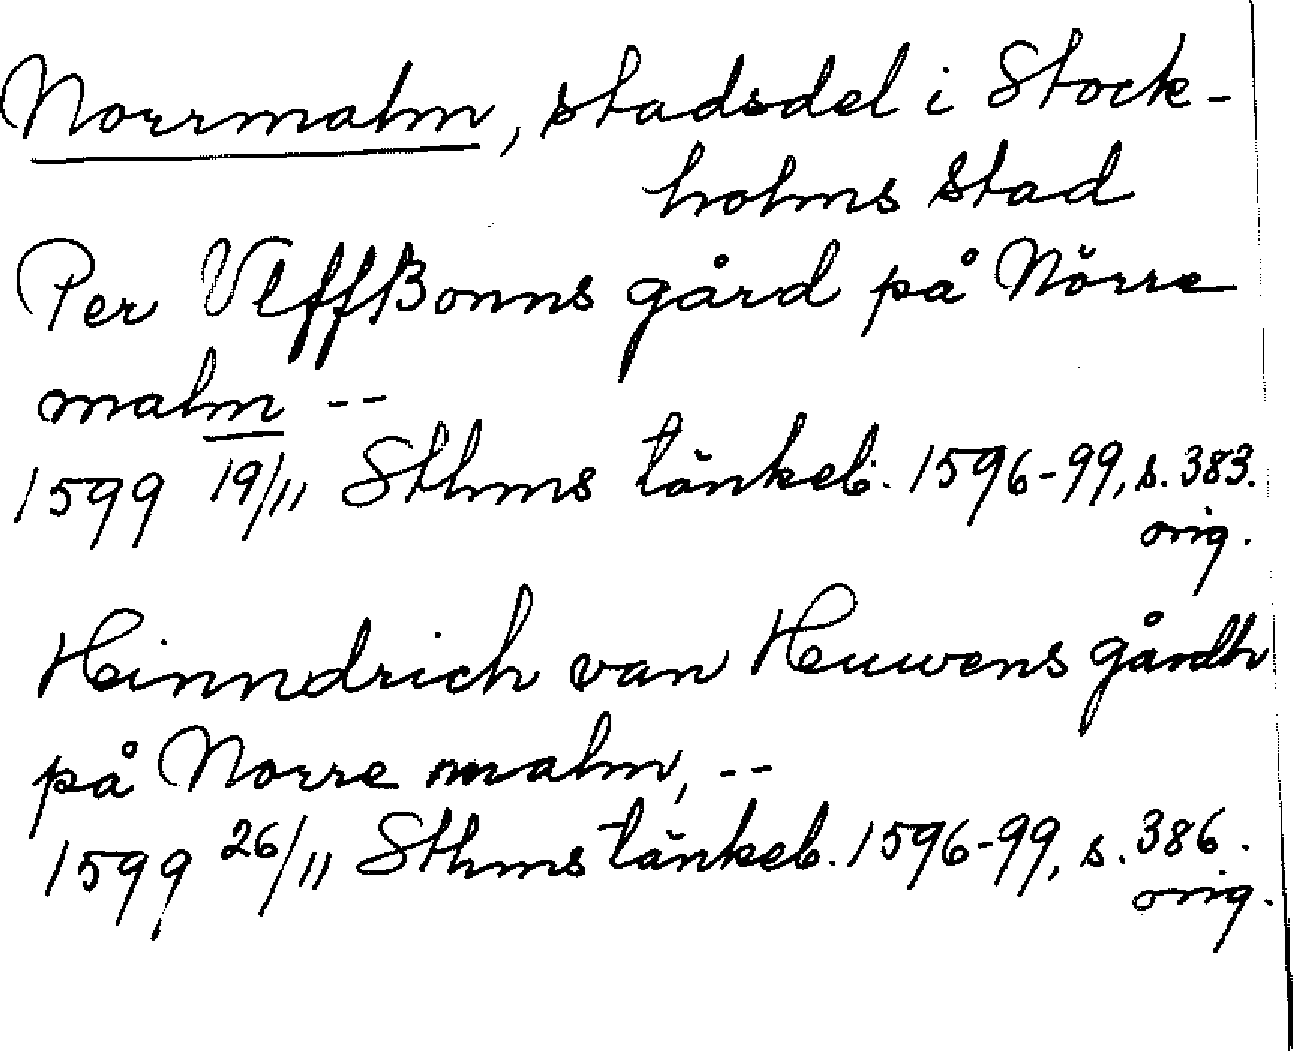 Norrmalm, stadsdel i Stock-
holms stad
Per Ulffßonns gård på Nörre
malm --
1599 19/11 Sthms tänkeb. 1596-99, s. 383.
orig.
Hinndrich van Huwens gårdh
på Norre malm, --
1599 26/11 Sthms tänkeb. 1596-99, s. 386.
orig.